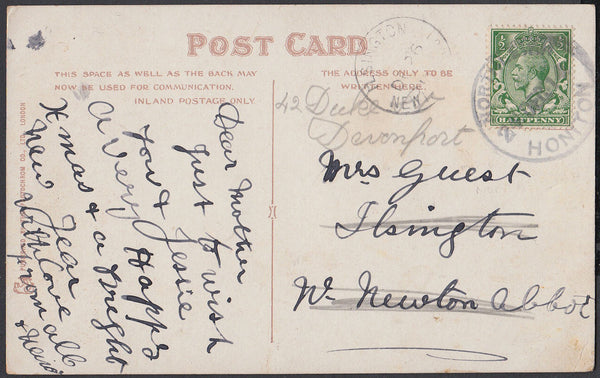 POST CARD
THIS SPACE AS WELL AS THE BACK MAY
NOW BE USED FOR COMMUNICATION.
INLAND POSTAGE ONLY
THE ADDRESS ONLY TO BE
WRITTEN HERE.
Dear Mother
Just to wish
you & Jessie
a Very Happy
Xmas & a Bright
New Year
with love
from all
42 Duke
Devonport
Mrs Guest
Ilsington
Nr. Newton Abbot
HALFPENNY
HONITON
LONDON